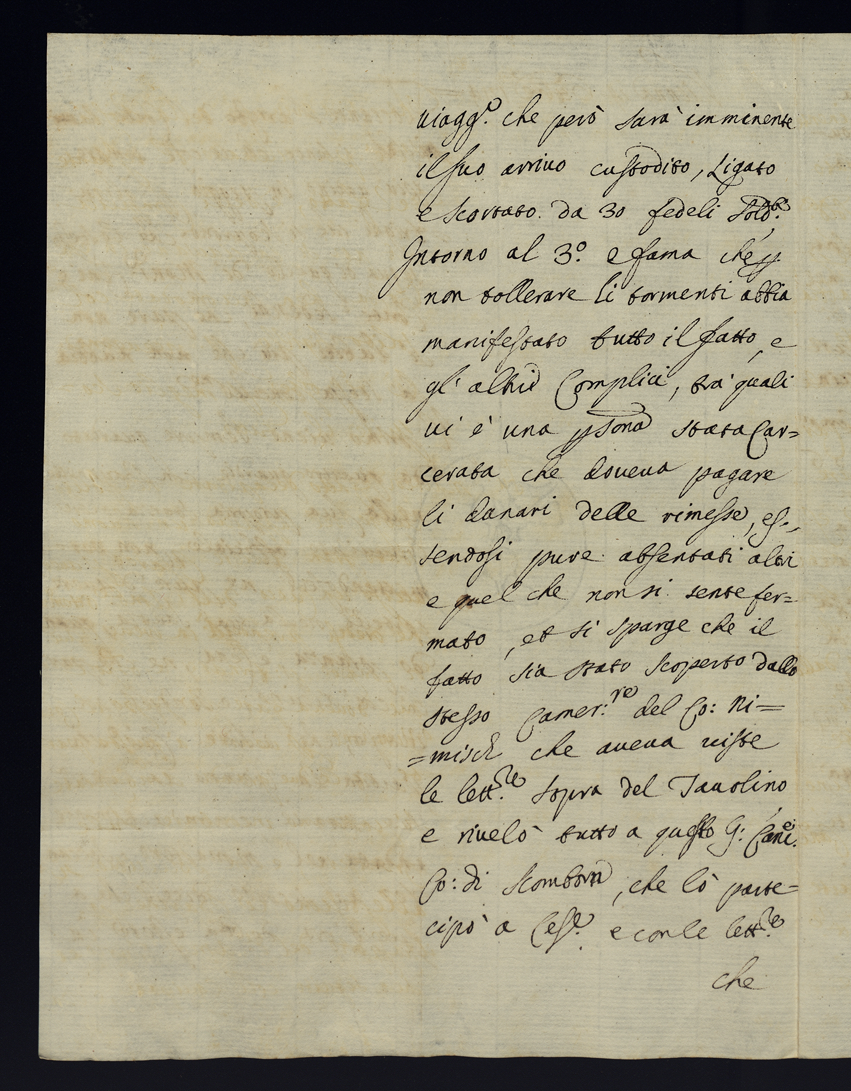 viagg.o che però sarà imminente
il suo arrivo custodito, Ligato
e scortato da 30 fedeli Sold.ti
Intorno al 3.o e fama che p
non tollerare li tormenti abbia
manifestato tutto il fatto, e
gl' altri Complici, tra' quali
vi è una psona stata Car=
cerata che doveva pagare
li danari delle rimesse, es=
sendosi pure absentati altri
e quel che non si sente fer=
mato, et si sparge che il
fatto sia stato scoperto dallo
stesso Camer:re del Co: Ni=
=misch che aveva viste
le lett.re sopra del Tavolino
e rivelò tutto a questo G: Canc.e
Co: di , che lò parte=
cipò a Ces.e e con le lett.re
che